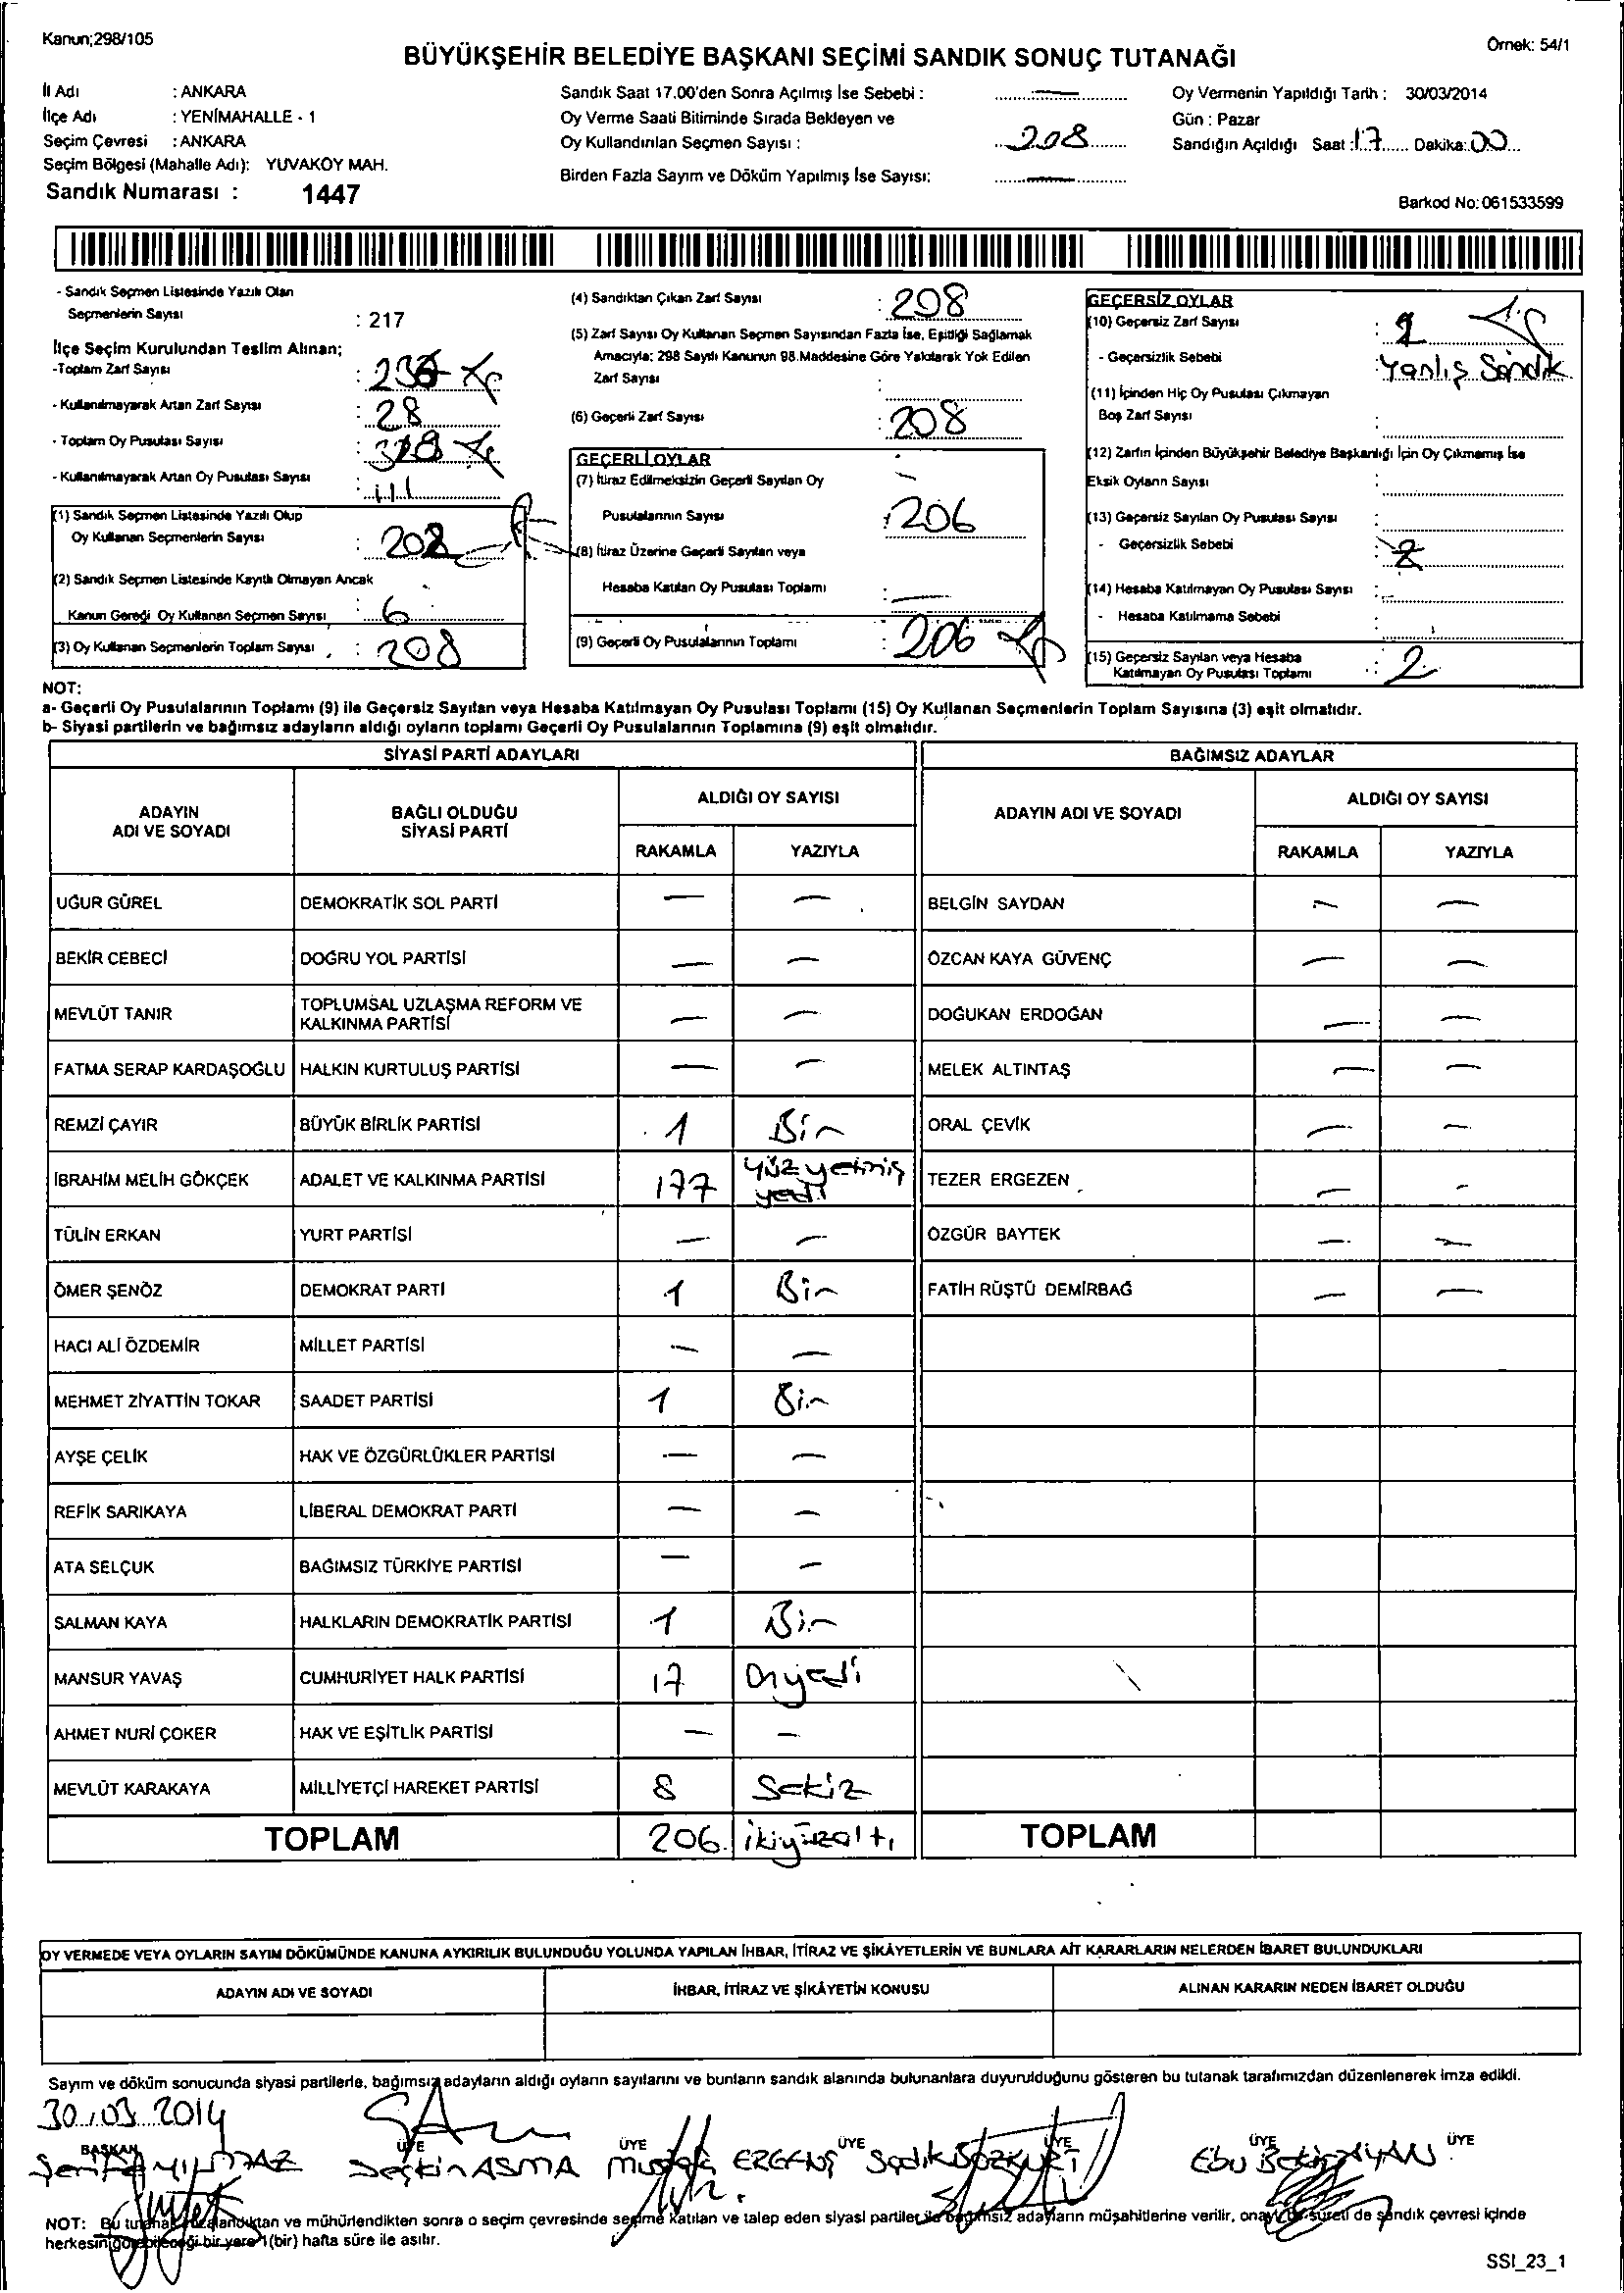 Kanun;298/105
Örnek: 54/1
BÜYÜKŞEHİR BELEDİYE BAŞKANI SEÇİMİ SANDIK SONUÇ TUTANAĞI
İl Adı : ANKARA
İlçe Adı : YENİMAHALLE - 1
Seçim Çevresi : ANKARA
Seçim Bölgesi (Mahalle Adı): YUVAKÖY MAH.
Sandık Numarası : 1447
Sandık Saat 17.00'den Sonra Açılmış İse Sebebi :
Oy Verme Saati Bitiminde Sırada Bekleyen ve
Oy Kullandırılan Seçmen Sayısı : 208
Birden Fazla Sayım ve Döküm Yapılmış İse Sayısı:
Oy Vermenin Yapıldığı Tarih : 30/03/2014
Gün : Pazar
Sandığın Açıldığı Saat : 17 Dakika: 00
Barkod No: 061533599
- Sandık Seçmen Listesinde Yazılı Olan
Seçmenlerin Sayısı : 217
İlçe Seçim Kurulundan Teslim Alınan;
-Toplam Zarf Sayısı :
- Kullanılmayarak Artan Zarf Sayısı : 28
- Toplam Oy Pusulası Sayısı :
- Kullanılmayarak Artan Oy Pusulası Sayısı : 111
(1) Sandık Seçmen Listesinde Yazılı Olup
Oy Kullanan Seçmenlerin Sayısı :
(2) Sandık Seçmen Listesinde Kayıtlı Olmayan Ancak
Kanun Gereği Oy Kullanan Seçmen Sayısı : 6
(3) Oy Kullanan Seçmenlerin Toplam Sayısı : 208
(4) Sandıktan Çıkan Zarf Sayısı : 208
(5) Zarf Sayısı Oy Kullanan Seçmen Sayısından Fazla İse, Eşitliği Sağlamak
Amacıyla; 298 Sayılı Kanunun 98.Maddesine Göre Yakılarak Yok Edilen
Zarf Sayısı :
(6) Geçerli Zarf Sayısı : 208
GEÇERLİ OYLAR
(7) İtiraz Edilmeksizin Geçerli Sayılan Oy
Pusulalarının Sayısı : 206
(8) İtiraz Üzerine Geçerli Sayılan veya
Hesaba Katılan Oy Pusulası Toplamı : —
(9) Geçerli Oy Pusulalarının Toplamı : 206
GEÇERSİZ OYLAR
(10) Geçersiz Zarf Sayısı :
- Geçersizlik Sebebi : Yanlış Sandık
(11) İçinden Hiç Oy Pusulası Çıkmayan
Boş Zarf Sayısı :
(12) Zarfın İçinden Büyükşehir Belediye Başkanlığı İçin Oy Çıkmamış İse
Eksik Oyların Sayısı :
(13) Geçersiz Sayılan Oy Pusulası Sayısı :
- Geçersizlik Sebebi : 2
(14) Hesaba Katılmayan Oy Pusulası Sayısı :
- Hesaba Katılmama Sebebi :
(15) Geçersiz Sayılan veya Hesaba
Katılmayan Oy Pusulası Toplamı : 2
NOT:
a- Geçerli Oy Pusulalarının Toplamı (9) ile Geçersiz Sayılan veya Hesaba Katılmayan Oy Pusulası Toplamı (15) Oy Kullanan Seçmenlerin Toplam Sayısına (3) eşit olmalıdır.
b- Siyasi partilerin ve bağımsız adayların aldığı oyların toplamı Geçerli Oy Pusulalarının Toplamına (9) eşit olmalıdır.
SİYASİ PARTİ ADAYLARI
ADAYIN ADI VE SOYADI BAĞLI OLDUĞU SİYASİ PARTİ ALDIĞI OY SAYISI
RAKAMLA YAZIYLA
UĞUR GÜREL DEMOKRATİK SOL PARTİ — —
BEKİR CEBECİ DOĞRU YOL PARTİSİ — —
MEVLÜT TANIR TOPLUMSAL UZLAŞMA REFORM VE KALKINMA PARTİSİ — —
FATMA SERAP KARDAŞOĞLU HALKIN KURTULUŞ PARTİSİ — —
REMZİ ÇAYIR BÜYÜK BİRLİK PARTİSİ 1 Bir
İBRAHİM MELİH GÖKÇEK ADALET VE KALKINMA PARTİSİ 177 yüz yetmiş yedi
TÜLİN ERKAN YURT PARTİSİ — —
ÖMER ŞENÖZ DEMOKRAT PARTİ 1 Bir
HACI ALİ ÖZDEMİR MİLLET PARTİSİ — —
MEHMET ZİYATTİN TOKAR SAADET PARTİSİ 1 Bir
AYŞE ÇELİK HAK VE ÖZGÜRLÜKLER PARTİSİ — —
REFİK SARIKAYA LİBERAL DEMOKRAT PARTİ — —
ATA SELÇUK BAĞIMSIZ TÜRKİYE PARTİSİ — —
SALMAN KAYA HALKLARIN DEMOKRATİK PARTİSİ 1 Bir
MANSUR YAVAŞ CUMHURİYET HALK PARTİSİ 17 Onyedi
AHMET NURİ ÇOKER HAK VE EŞİTLİK PARTİSİ — —
MEVLÜT KARAKAYA MİLLİYETÇİ HAREKET PARTİSİ 8 Sekiz
TOPLAM 206 ikiyüzaltı
BAĞIMSIZ ADAYLAR
ADAYIN ADI VE SOYADI ALDIĞI OY SAYISI
RAKAMLA YAZIYLA
BELGİN SAYDAN — —
ÖZCAN KAYA GÜVENÇ — —
DOĞUKAN ERDOĞAN — —
MELEK ALTINTAŞ — —
ORAL ÇEVİK — —
TEZER ERGEZEN — —
ÖZGÜR BAYTEK — —
FATİH RÜŞTÜ DEMİRBAĞ — —
TOPLAM
OY VERMEDE VEYA OYLARIN SAYIM DÖKÜMÜNDE KANUNA AYKIRILIK BULUNDUĞU YOLUNDA YAPILAN İHBAR, İTİRAZ VE ŞİKÂYETLERİN VE BUNLARA AİT KARARLARIN NELERDEN İBARET BULUNDUKLARI
ADAYIN ADI VE SOYADI İHBAR, İTİRAZ VE ŞİKÂYETİN KONUSU ALINAN KARARIN NEDEN İBARET OLDUĞU
Sayım ve döküm sonucunda siyasi partilerle, bağımsız adayların aldığı oyların sayılarını ve bunların sandık alanında bulunanlara duyurulduğunu gösteren bu tutanak tarafımızdan düzenlenerek imza edildi.
30/03/2014
BAŞKAN ÜYE ÜYE ÜYE ÜYE ÜYE ÜYE
YILMAZ Seçkin ASMA Mustafa Sadık BOZKURT Ebu Bekir
NOT: Bu tutanak imzalandıktan ve mühürlendikten sonra o seçim çevresinde seçime katılan ve talep eden siyasi partiler ile bağımsız adayların müşahitlerine verilir, onaylı bir sureti de sandık çevresi içinde
herkesin görebileceği bir yere 1(bir) hafta süre ile asılır.
SSI_23_1